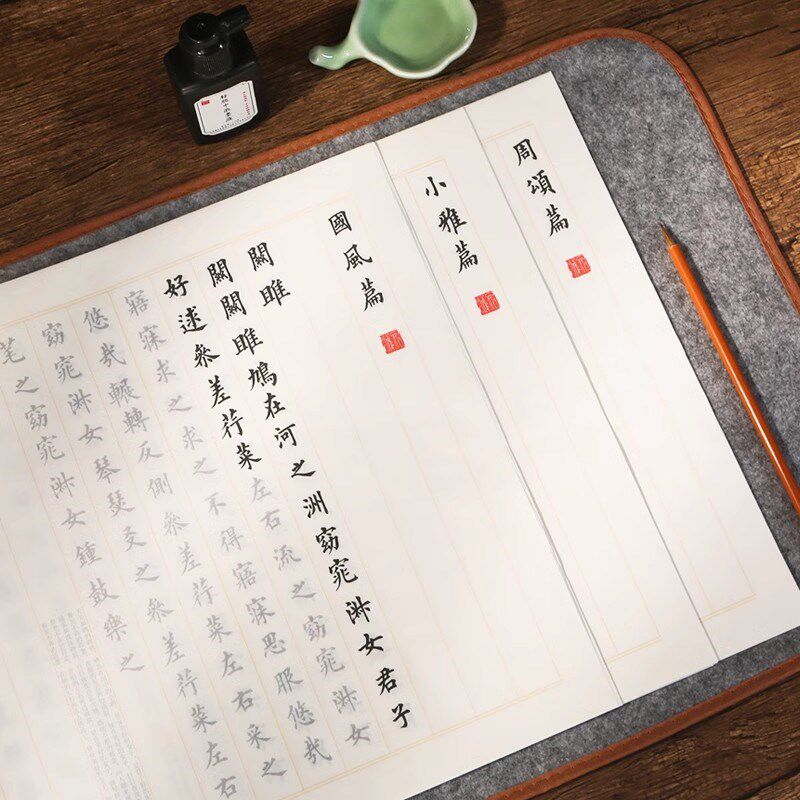 周頌篇
小雅篇
國風篇
關雎
關關雎鳩在河之洲窈窕淑女君子
好逑參差荇菜左右流之窈窕淑女
寤寐求之求之不得寤寐思服悠哉
悠哉輾轉反側參差荇菜左右采之
窈窕淑女琴瑟友之參差荇菜左右
芼之窈窕淑女鍾鼓樂之